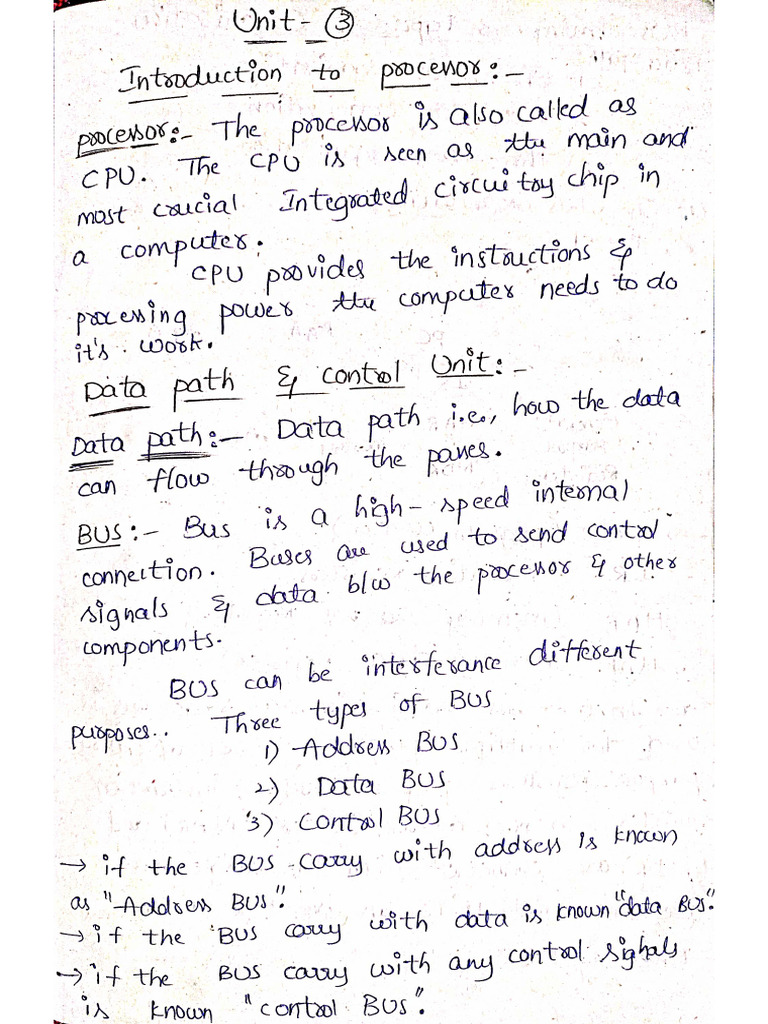 Unit - ③
Introduction to processor:-
processor:- The processor is also called as
CPU. The CPU is seen as the main and
most crucial Integrated circuitry chip in
a computer.
CPU provides the instructions &
processing power the computer needs to do
it's work.
Data path & control Unit:-
Data path:- Data path i.e., how the data
can flow through the panes.
BUS:- Bus is a high-speed internal
connection. Buses are used to send control
signals & data b/w the processor & other
components.
BUS can be interferance different
purposes.. Three types of BUS
1) Address BUS
2) Data BUS
3) Control BUS.
→ if the BUS carry with address is known
as "Address BUS".
→ if the BUS carry with data is known "data BUS".
→ if the BUS carry with any control signals
is known "control BUS".